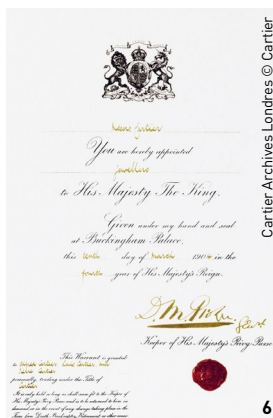 You are hereby appointed
Jewellers
to His Majesty The King.
Given under my hand and seal
at Buckingham Palace,
this tenth day of March 1904 in the
fourth year of His Majesty's Reign.
Keeper of His Majesty's Privy Purse
This Warrant is granted
to Alfred Cartier, Louis Cartier, and
Pierre Cartier
personally, trading under the Title of
Cartier
Cartier Archives Londres © Cartier
6